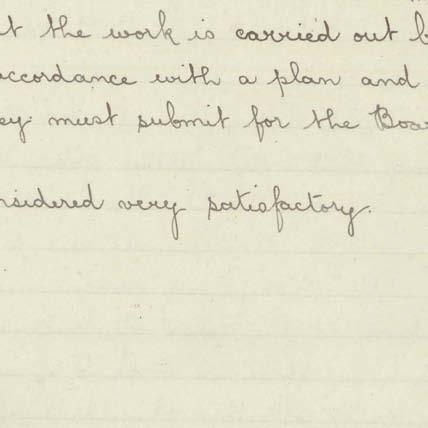 t the work is carried out b
accordance with a plan and
ey must submit for the Boa
nsidered very satisfactory.